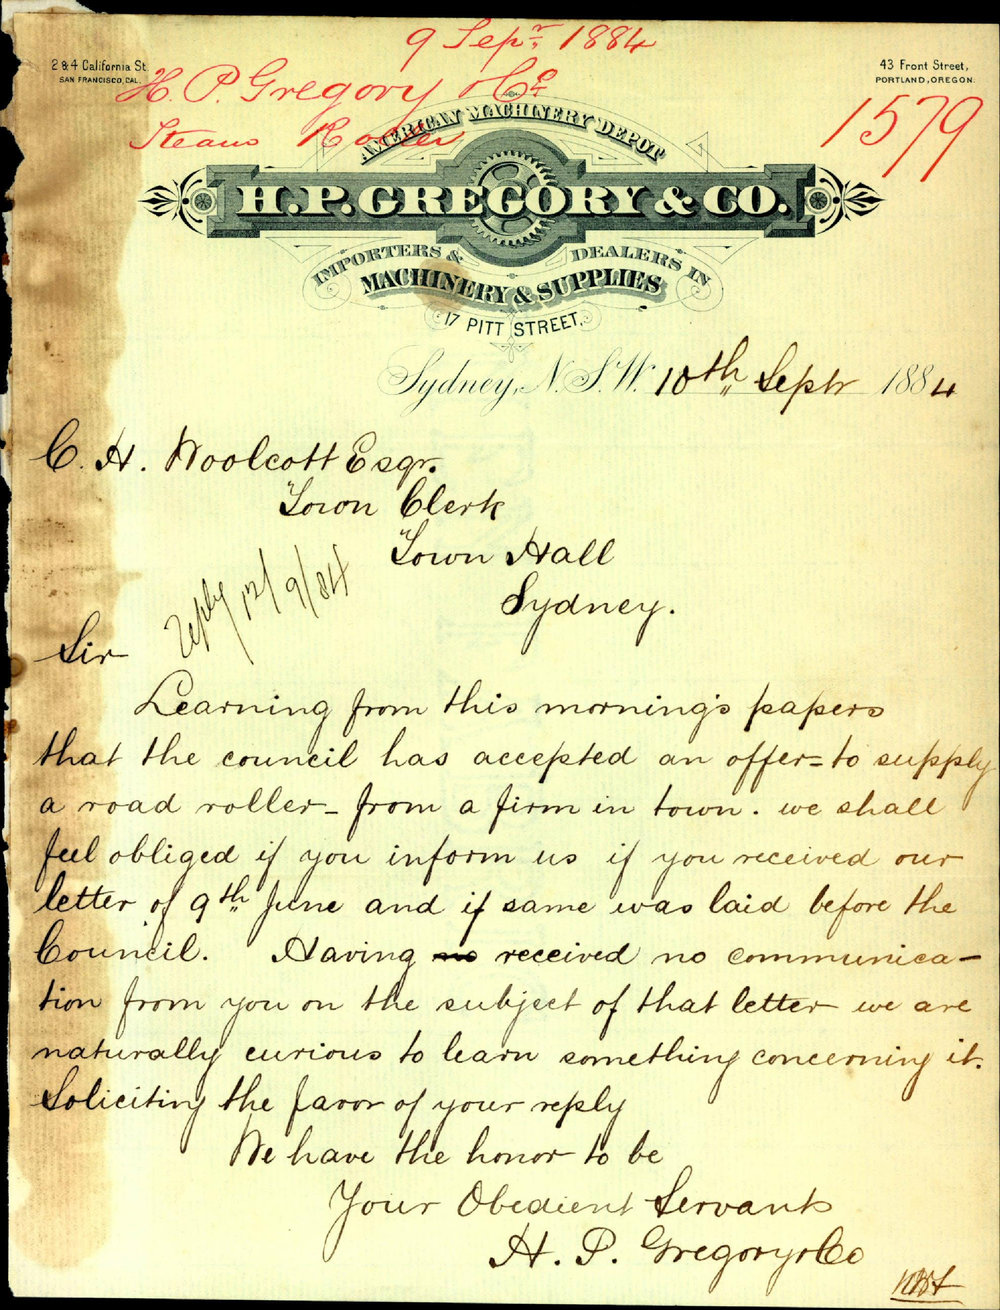 9 Sepr. 1884
2 & 4 California St.
SAN FRANCISCO, CAL.
43 Front Street,
PORTLAND, OREGON.
H. P. Gregory & Co
1579
Steam Roller
AMERICAN MACHINERY DEPOT
H. P. GREGORY & CO.
IMPORTERS & DEALERS IN
MACHINERY & SUPPLIES
17 PITT STREET,
Sydney, N.S.W. 10th Septr 1884
C. H. Woolcott Esqr.
Town Clerk
Town Hall
Sydney.
reply 12/9/84
Sir
Learning from this morning's papers
that the council has accepted an offer - to supply
a road roller - from a firm in town. we shall
feel obliged if you inform us if you received our
letter of 9th June and if same was laid before the
Council. Having no received no communica-
tion from you on the subject of that letter we are
naturally curious to learn something concerning it.
Soliciting the favor of your reply
We have the honor to be
Your Obedient Servants
H. P. Gregory & Co